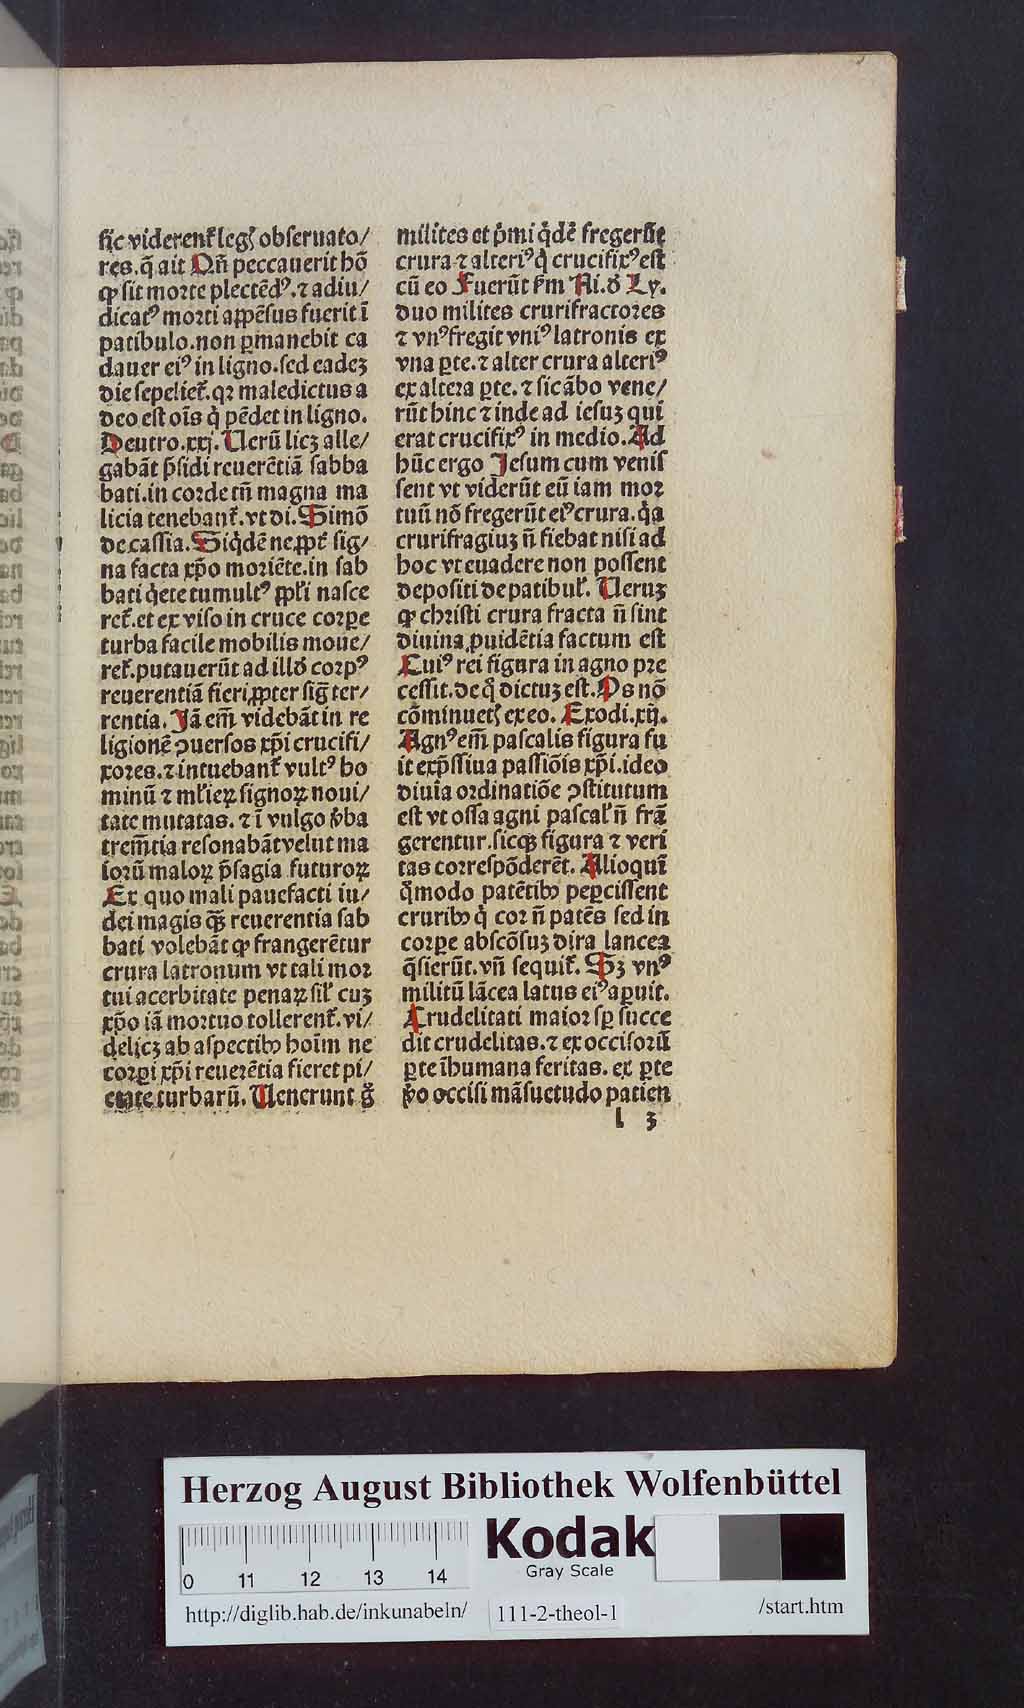 sic viderent᷑ legꝭ obseruato/
res. q̄ ait Qn̄ peccauerit hō
ꝙ sit morte plectēdꝰ. ⁊ adiu/
dicatꝰ morti appēsus fuerit ī
patibulo. non ꝑmanebit ca
dauer eiꝰ in ligno. sed eadeꝫ
die sepeliet᷑. qꝛ maledictus a
deo est oīs q̇ pēdet in ligno.
Deutro. xxj. Uerū licꝫ alle/
gabāt p̄sidi reuerētiā sabba
bati. in corde tn̄ magna ma
licia tenebant᷑. vt di. Simō
de cassia. Siq̇dē ne ꝓpt᷑ sig/
na facta xp̄o moriēte. in sab
bati q̇ete tumultꝰ ꝓpl᷑i nasce
ret᷑. et ex viso in cruce corꝑe
turba facile mobilis moue/
ret᷑. putauerūt ad illoꝝ corpꝰ
reuerentiā fieri ꝓpter sig̅ ter/
rentia. Jā em̄ videbāt in re
ligionē ꝯuersos xp̄i crucifi/
xores. ⁊ intuebant᷑ vultꝰ ho
minū ⁊ ml᷑ieꝝ signoꝝ noui/
tate mutatas. ⁊ ī vulgo v̾ba
trem̄tia resonabāt velut ma
iorū maloꝝ p̄sagia futuroꝝ
Ex quo mali pauefacti iu/
dei magis qꝫ̄ reuerentia sab
bati volebāt ꝙ frangerētur
crura latronum vt tali mor
tui acerbitate penaꝝ sil᷑ cuꝫ
xp̄o iā mortuo tollerent᷑. vi/
delicꝫ ab aspectibꝰ hoīm ne
corꝑi xp̄i reuerētia fieret pi/
etate turbarū. Uenerunt g̊
milites et p̄mi q̇dē fregerūt
crura ⁊ alteriꝰ q̇ crucifixꝰ est
cū eo Fuerūt ẜm Ni. d̓ Ly.
duo milites crurifractores
⁊ vnꝰ fregit vniꝰ latronis ex
vna ꝑte. ⁊ alter crura alteriꝰ
ex altera ꝑte. ⁊ sic ābo vene/
rūt hinc ⁊ inde ad iesuꝫ qui
erat crucifixꝰ in medio. Ad
hūc ergo Jesum cum venis
sent vt viderūt eū iam mor
tuū nō fregerūt eiꝰ crura. q̇a
crurifragiuꝫ n̄ fiebat nisi ad
hoc vt euadere non possent
depositi de patibul᷑. Ueruꝫ
ꝙ christi crura fracta n̄ sint
diuina ꝓuidētia factum est
Cuiꝰ rei figura in agno pre
cessit. de q̊ dictuꝫ est. Os nō
cōminuetꝭ ex eo. Exodi. xij.
Agnꝰ em̄ pascalis figura fu
it exp̄ssiua passiōis xp̄i. ideo
diuīa ordinatiōe ꝯstitutum
est vt ossa agni pascal᷑ n̄ frā
gerentur. sicqꝫ figura ⁊ veri
tas correspōderēt. Alioquī
q̊modo patētibꝰ peꝑcissent
cruribꝰ q̇ cor n̄ patēs sed in
corꝑe abscōsuꝫ dira lancea
q̄sierūt. vn̄ sequit᷑. Sꝫ vnꝰ
militū lācea latus eiꝰ aꝑuit.
Crudelitati maior sꝑ succe
dit crudelitas. ⁊ ex occisorū
ꝑte īhumana feritas. ex ꝑte
v̾o occisi māsuetudo patien
l 3
Herzog August Bibliothek Wolfenbüttel
Kodak
Gray Scale
0 11 12 13 14
http://diglib.hab.de/inkunabeln/ 111-2-theol-1 /start.htm